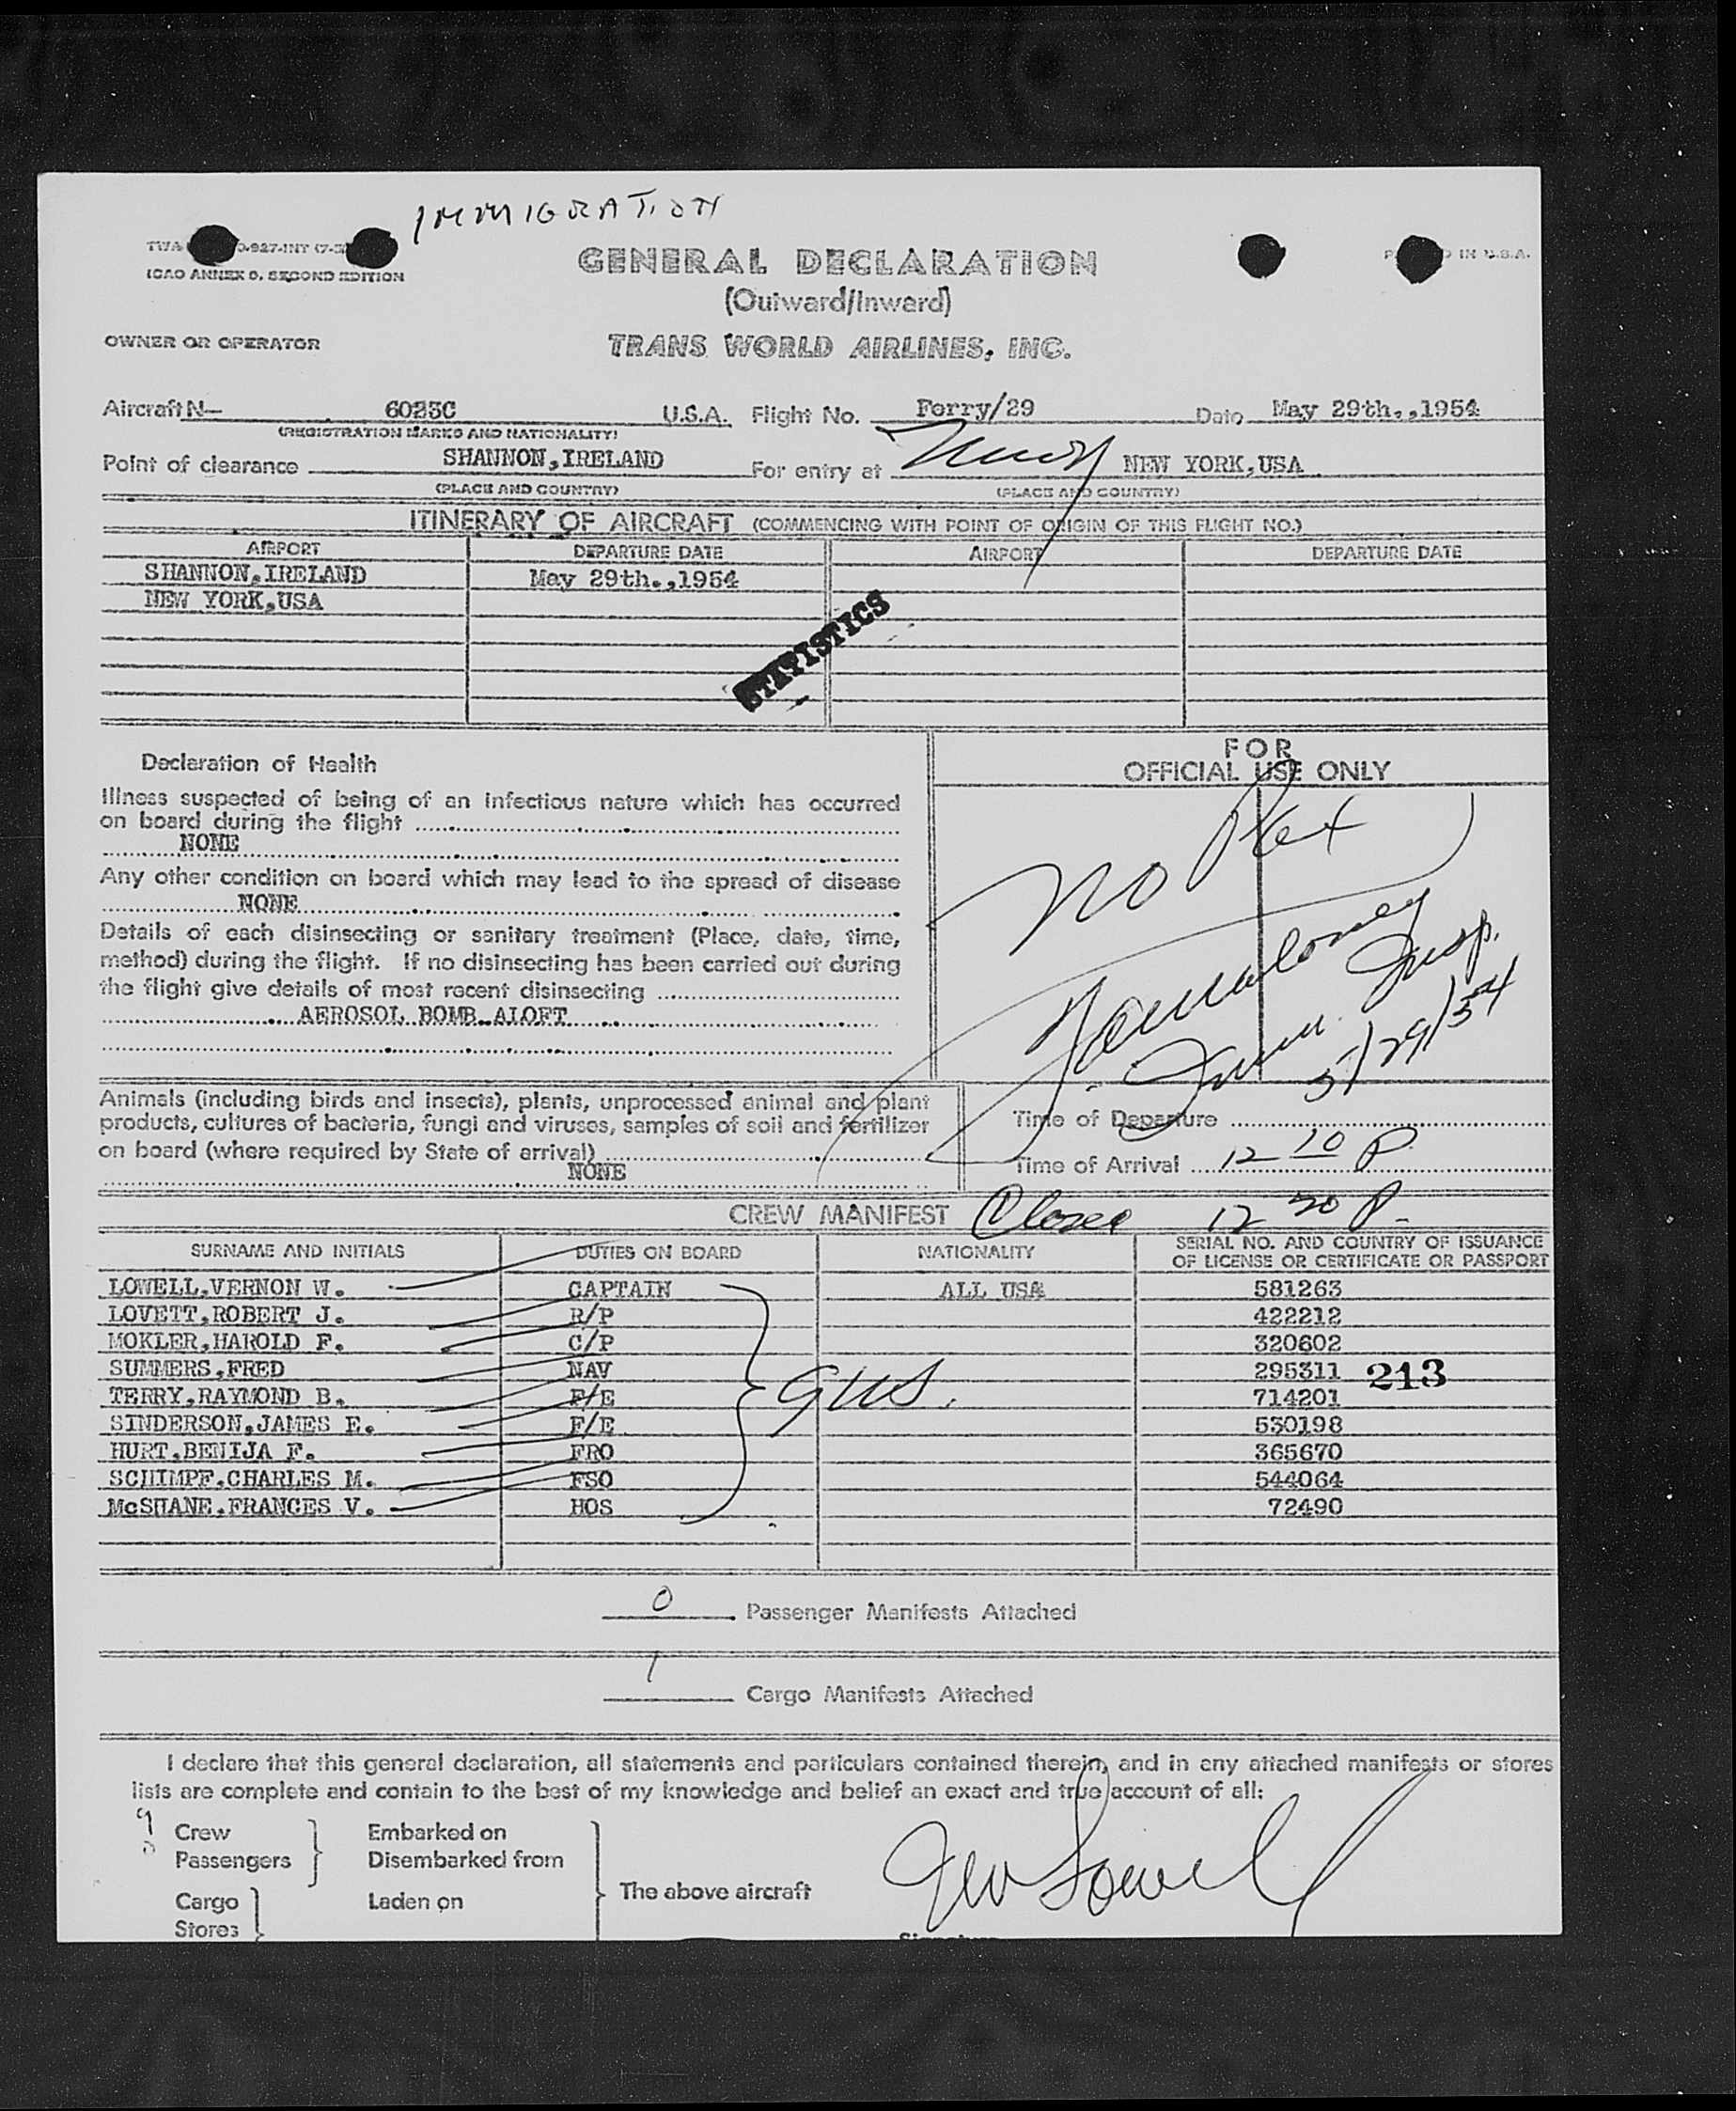 IMMIGRATION
TWA 0-927-INT (7-5
ICAO ANNEX 9, SECOND EDITION
IN U.S.A.
GENERAL DECLARATION
(Outward/Inward)
OWNER OR OPERATOR
TRANS WORLD AIRLINES, INC.
Aircraft N— 6023C U.S.A. Flight No. Ferry/29 Date May 29th.,1954
(REGISTRATION MARKS AND NATIONALITY)
Point of clearance SHANNON,IRELAND For entry at NEW YORK,USA
(PLACE AND COUNTRY) (PLACE AND COUNTRY)
ITINERARY OF AIRCRAFT (COMMENCING WITH POINT OF ORIGIN OF THIS FLIGHT NO.)
AIRPORT DEPARTURE DATE AIRPORT DEPARTURE DATE
SHANNON,IRELAND May 29th.,1954
NEW YORK,USA
STATISTICS
Declaration of Health
Illness suspected of being of an infectious nature which has occurred
on board during the flight
NONE
Any other condition on board which may lead to the spread of disease
NONE
Details of each disinsecting or sanitary treatment (Place, date, time,
method) during the flight. If no disinsecting has been carried out during
the flight give details of most recent disinsecting
AEROSOL BOMB ALOFT
FOR
OFFICIAL USE ONLY
No
Insp.
Imm.
5/29/54
Animals (including birds and insects), plants, unprocessed animal and plant
products, cultures of bacteria, fungi and viruses, samples of soil and fertilizer
on board (where required by State of arrival)
NONE
Time of Departure
Time of Arrival 12 10 P
CREW MANIFEST Closed 12 20 P.
SURNAME AND INITIALS DUTIES ON BOARD NATIONALITY SERIAL NO. AND COUNTRY OF ISSUANCE
OF LICENSE OR CERTIFICATE OR PASSPORT
LOWELL,VERNON W. CAPTAIN ALL USA 581263
LOVETT,ROBERT J. R/P 422212
MOKLER,HAROLD F. C/P 320602
SUMMERS,FRED NAV 295311 213
TERRY,RAYMOND B. F/E 714201
SINDERSON,JAMES E. F/E 530198
HURT,BENIJA F. FRO 365670
SCHIMPF,CHARLES M. FSO 544064
McSHANE,FRANCES V. HOS 72490
0 Passenger Manifests Attached
1 Cargo Manifests Attached
I declare that this general declaration, all statements and particulars contained therein, and in any attached manifests or stores
lists are complete and contain to the best of my knowledge and belief an exact and true account of all:
9 Crew Embarked on
0 Passengers Disembarked from
The above aircraft
Cargo Laden on
Stores